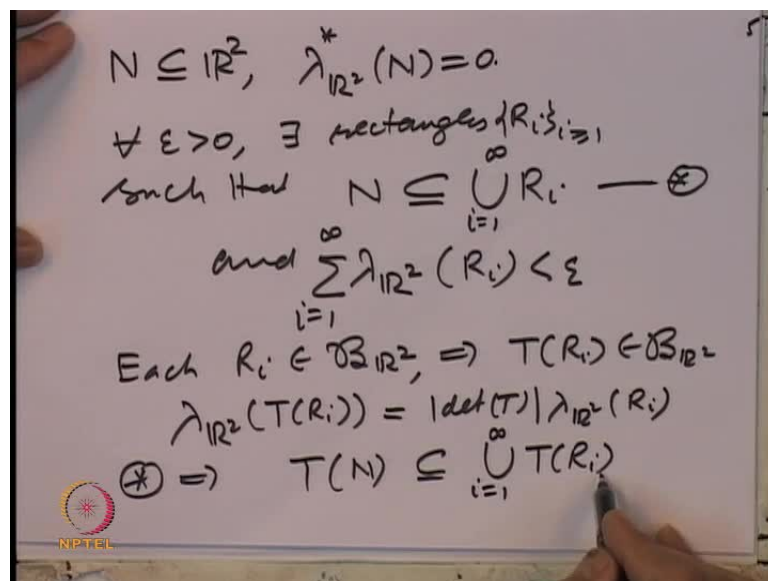 5
N ⊆ ℝ², λ*_{ℝ²}(N) = 0.
∀ ε > 0, ∃ rectangles {R_i}_{i≥1}
such that N ⊆ ⋃_{i=1}^{∞} R_i — ⊛
and ∑_{i=1}^{∞} λ_{ℝ²}(R_i) < ε
Each R_i ∈ 𝔅_{ℝ²}, ⇒ T(R_i) ∈ 𝔅_{ℝ²}
λ_{ℝ²}(T(R_i)) = |det(T)| λ_{ℝ²}(R_i)
⊛ ⇒ T(N) ⊆ ⋃_{i=1}^{∞} T(R_i)
NPTEL